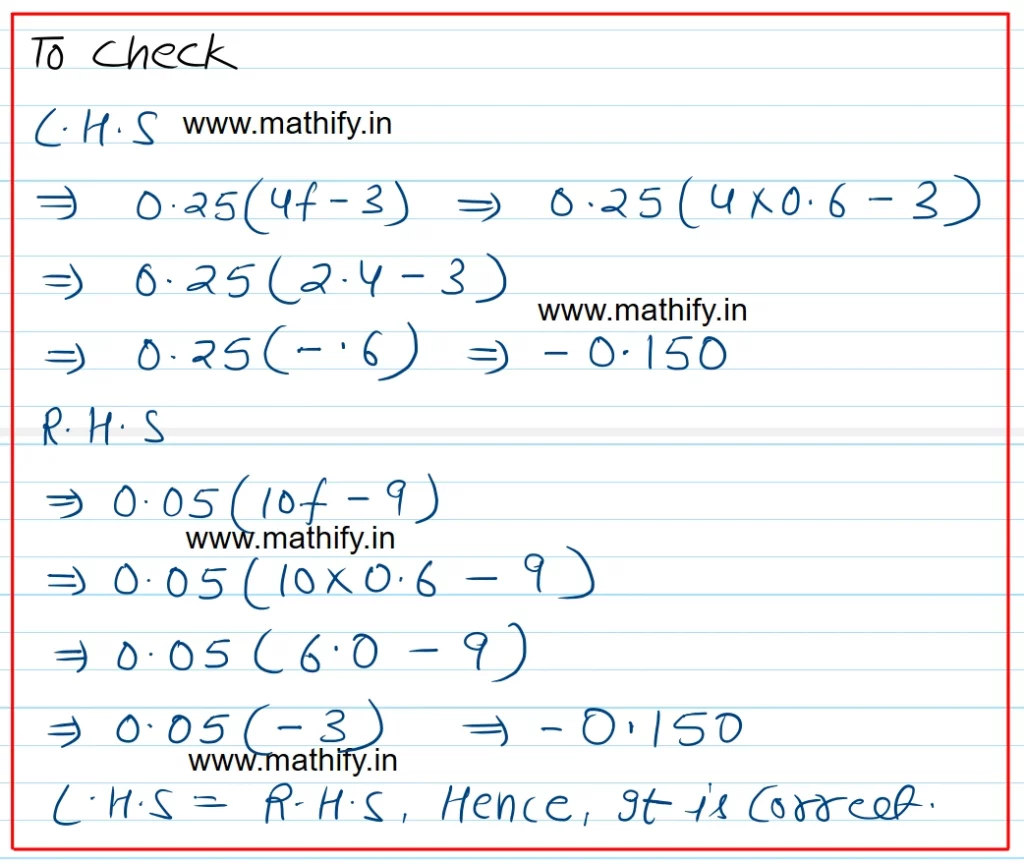 To Check
L.H.S www.mathify.in
⇒ 0.25(4f - 3) ⇒ 0.25(4×0.6 - 3)
⇒ 0.25(2.4 - 3)
www.mathify.in
⇒ 0.25(-.6) ⇒ -0.150
R.H.S
⇒ 0.05(10f - 9)
www.mathify.in
⇒ 0.05(10×0.6 - 9)
⇒ 0.05(6.0 - 9)
⇒ 0.05(-3) ⇒ -0.150
www.mathify.in
L.H.S = R.H.S, Hence, It is Correct.